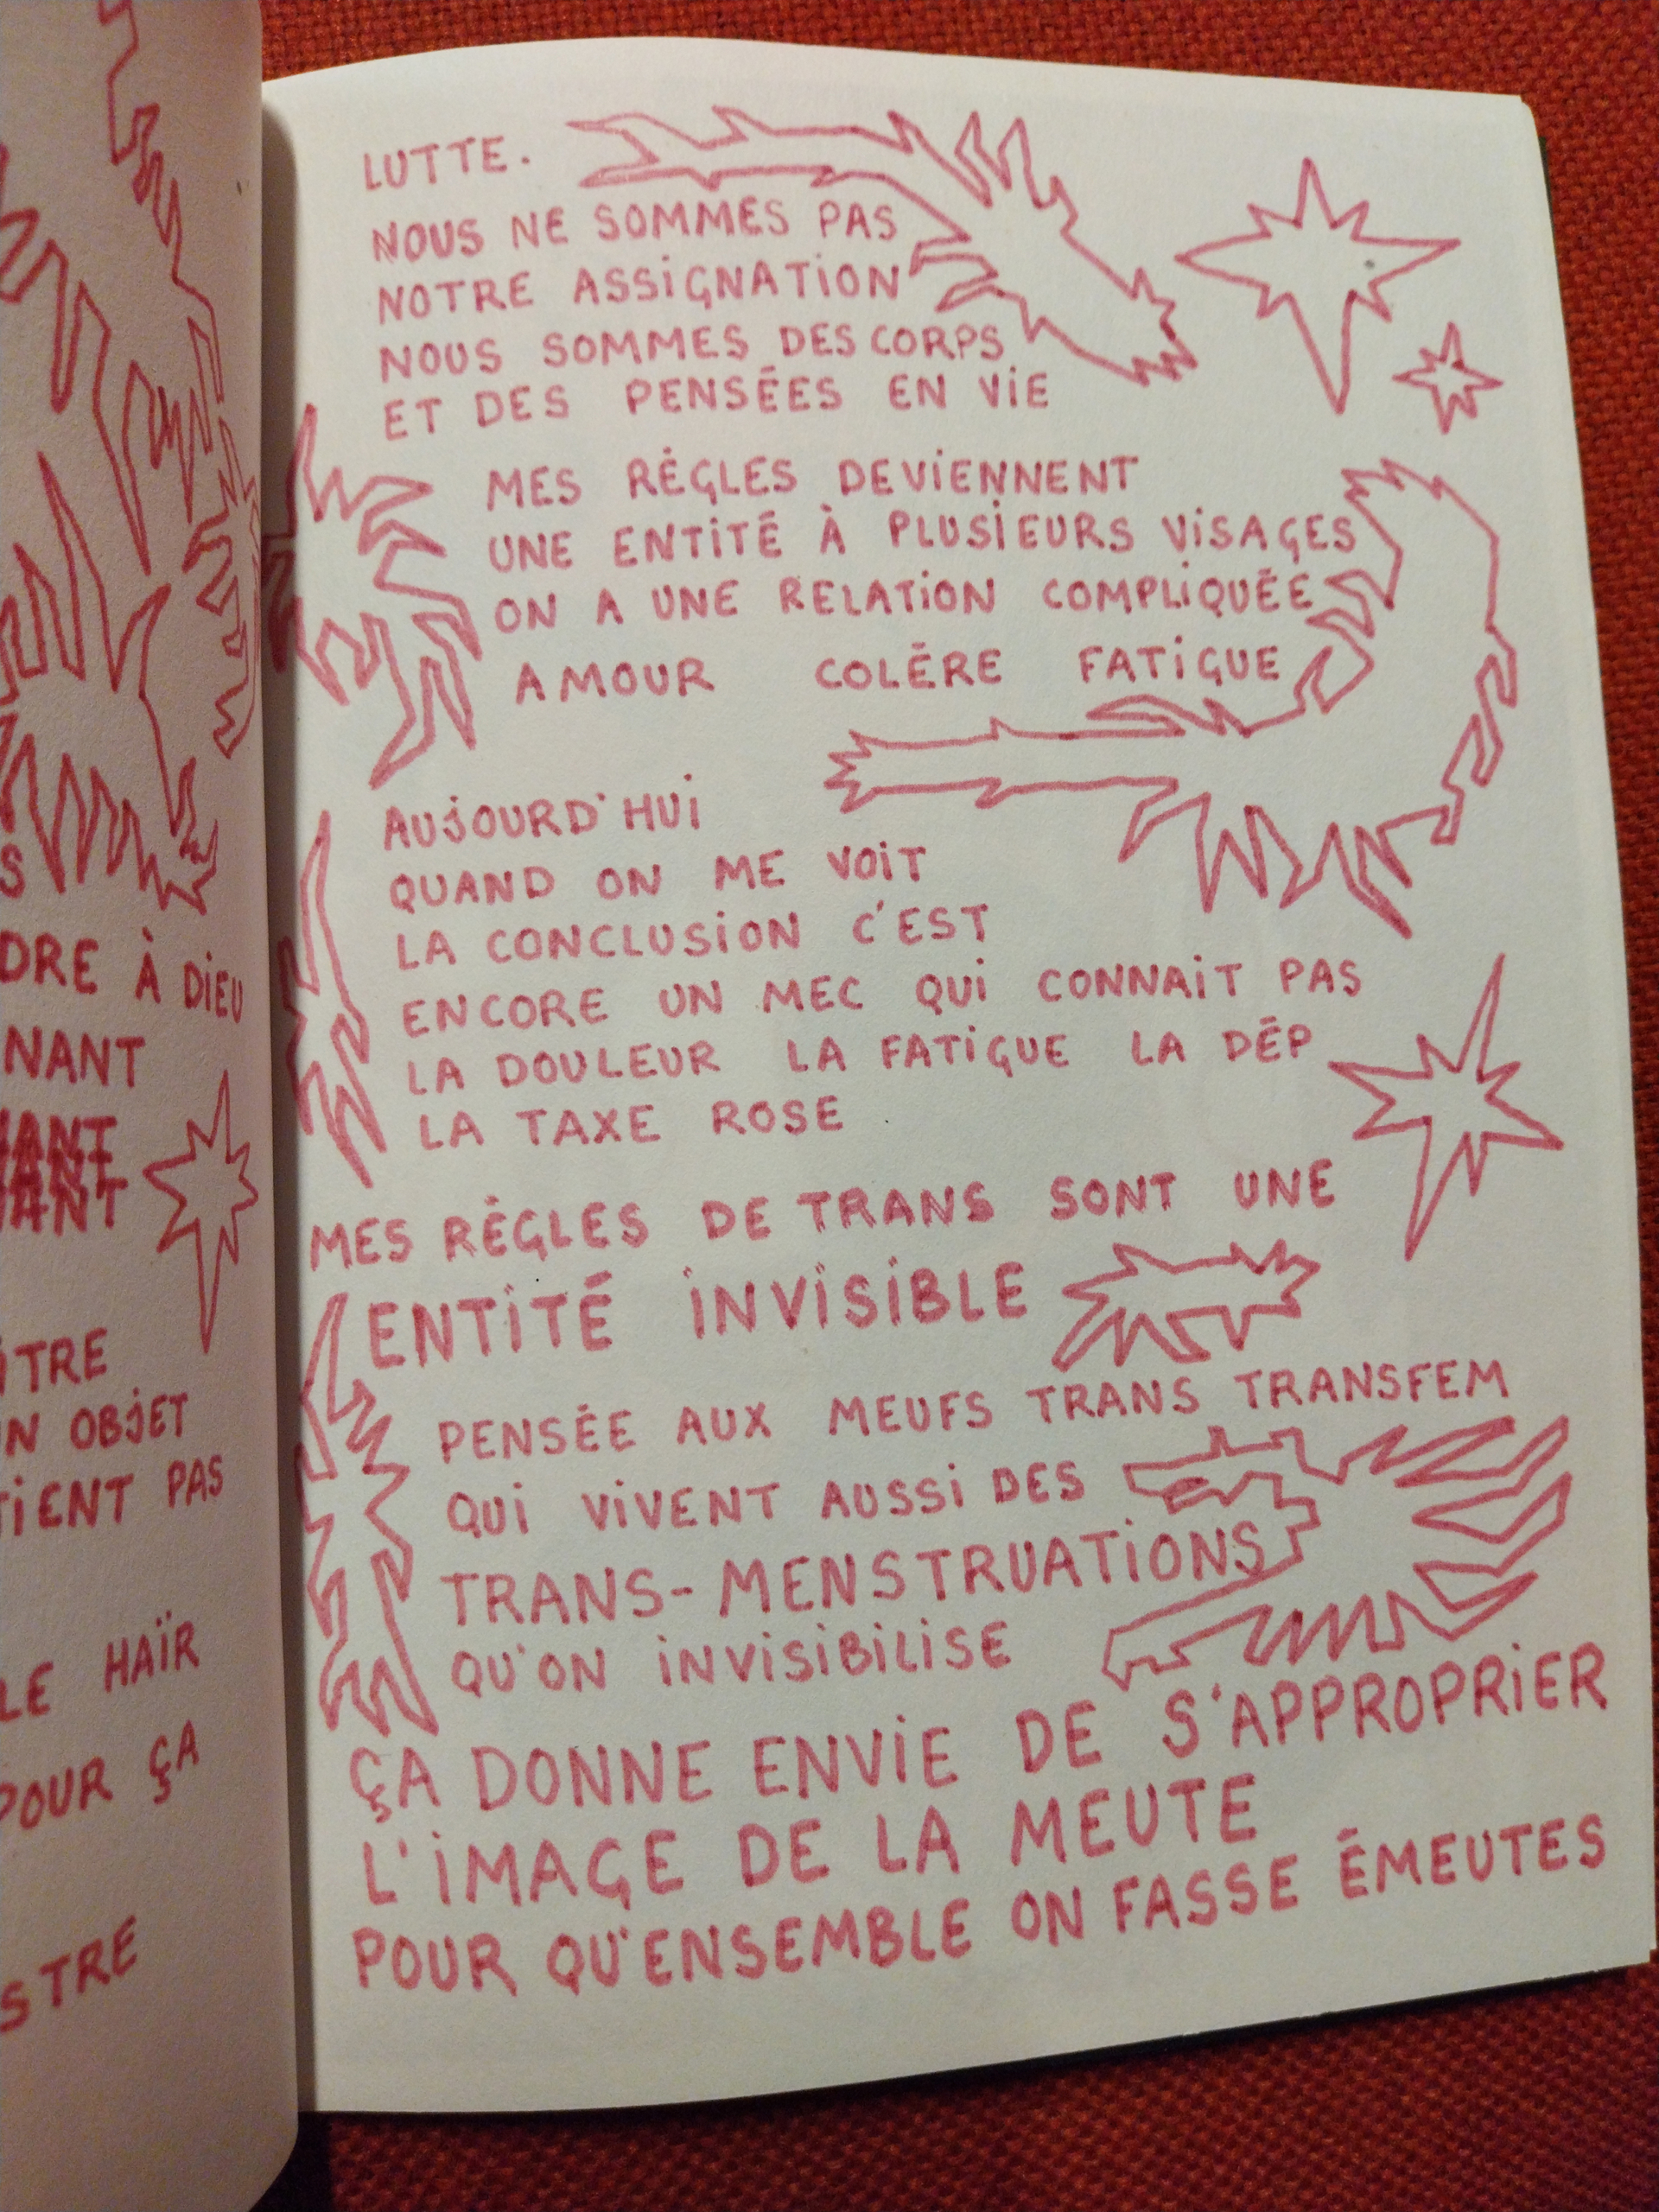 S
DRE À DiEU
NANT
VANT
VANT
VANT
ÎTRE
UN OBJET
TiENT PAS
LE HAÏR
POUR ÇA
STRE
LUTTE.
NOUS NE SOMMES PAS
NOTRE ASSiGNATiON
NOUS SOMMES DES CORPS
ET DES PENSÉES EN ViE
MES RÈGLES DEViENNENT
UNE ENTiTÉ À PLUSiEURS ViSAGES
ON A UNE RELATiON COMPLiQUÉE
AMOUR COLÈRE FATiGUE
AUjOURD'HUi
QUAND ON ME VOiT
LA CONCLUSiON C'EST
ENCORE UN MEC QUi CONNAiT PAS
LA DOULEUR LA FATiGUE LA DÉP
LA TAXE ROSE
MES RÈGLES DE TRANS SONT UNE
ENTiTÉ iNViSiBLE
PENSÉE AUX MEUFS TRANS TRANSFEM
QUi ViVENT AUSSi DES
TRANS-MENSTRUATiONS
QU'ON iNViSiBiLiSE
ÇA DONNE ENViE DE S'APPROPRiER
L'iMAGE DE LA MEUTE
POUR QU'ENSEMBLE ON FASSE ÉMEUTES